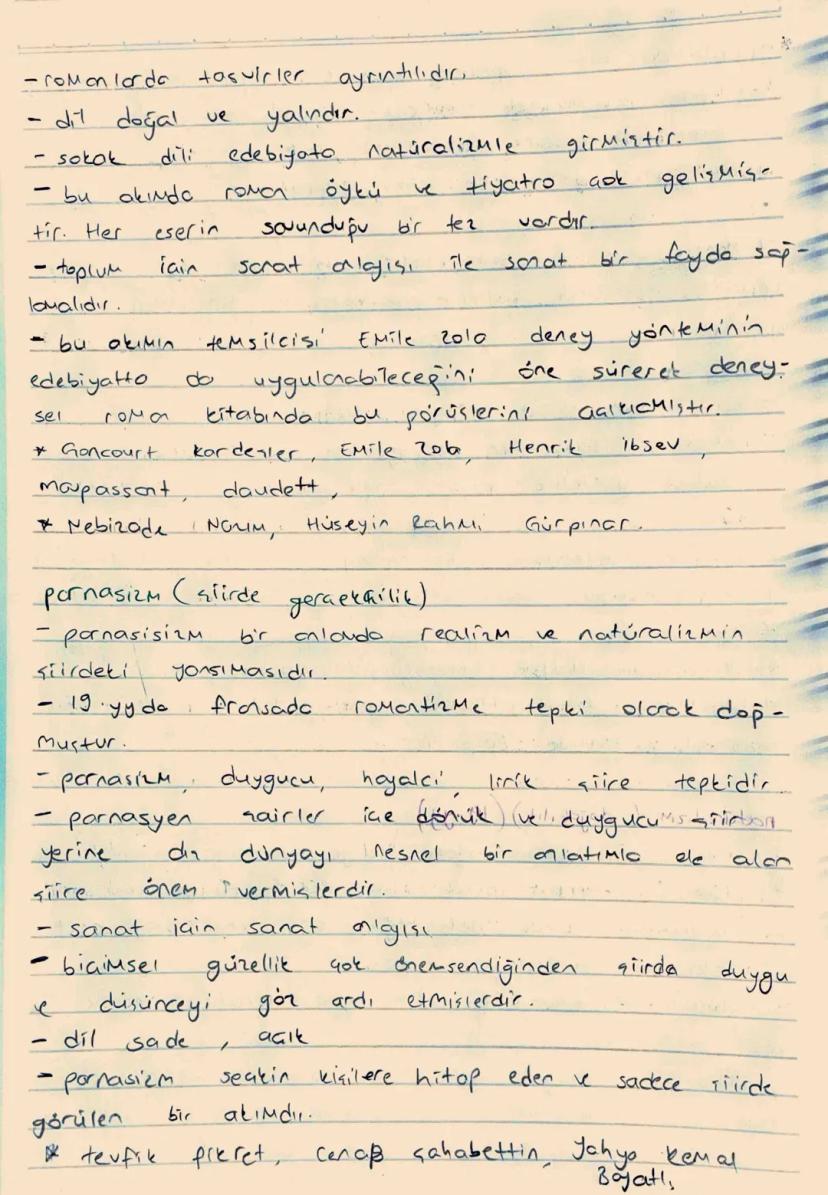 - romanlarda tasvirler ayrıntılıdır.
- dil doğal ve yalındır.
- sokak dili edebiyata natüralizmle girmiştir.
- bu akımda roman öykü ve tiyatro çok gelişmiş-
tir. Her eserin savunduğu bir tez vardır.
- toplum için sanat anlayışı ile sanat bir fayda sağ-
lamalıdır.
- bu akımın temsilcisi Emile Zola deney yönteminin
edebiyatta da uygulanabileceğini öne sürerek deney-
sel roman kitabında bu görüşlerini açıklamıştır.
* Goncourt kardeşler, Emile Zola, Henrik ibsev,
maupassant, daudett,
* Nebizade Nazım, Hüseyin Rahmi Gürpınar.
parnasizm (şiirde gerçekçilik)
- parnasisizm bir anlamda realizm ve natüralizmin
şiirdeki yansımasıdır.
- 19.yy da fransada romantizme tepki olarak doğ-
muştur.
- parnasizm, duygucu, hayalci, lirik şiire tepkidir.
- parnasyen şairler içe dönük ve duygucu
yerine dış dünyayı nesnel bir anlatımla ele alan
şiire önem vermişlerdir.
- sanat için sanat anlayışı
- biçimsel güzellik çok önemsendiğinden şiirde duygu
ve düşünceyi göz ardı etmişlerdir.
- dil sade, açık
- parnasizm seçkin kişilere hitap eden ve sadece şiirde
görülen bir akımdır.
* tevfik fikret, cenap şahabettin, Yahya Kemal
Beyatlı,